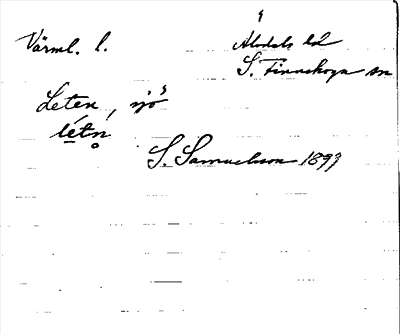 Värml. l.
Älvdals hd
S. Finnskoga sn
Leten, sjö
létn̥
S. Samuelsson 1899